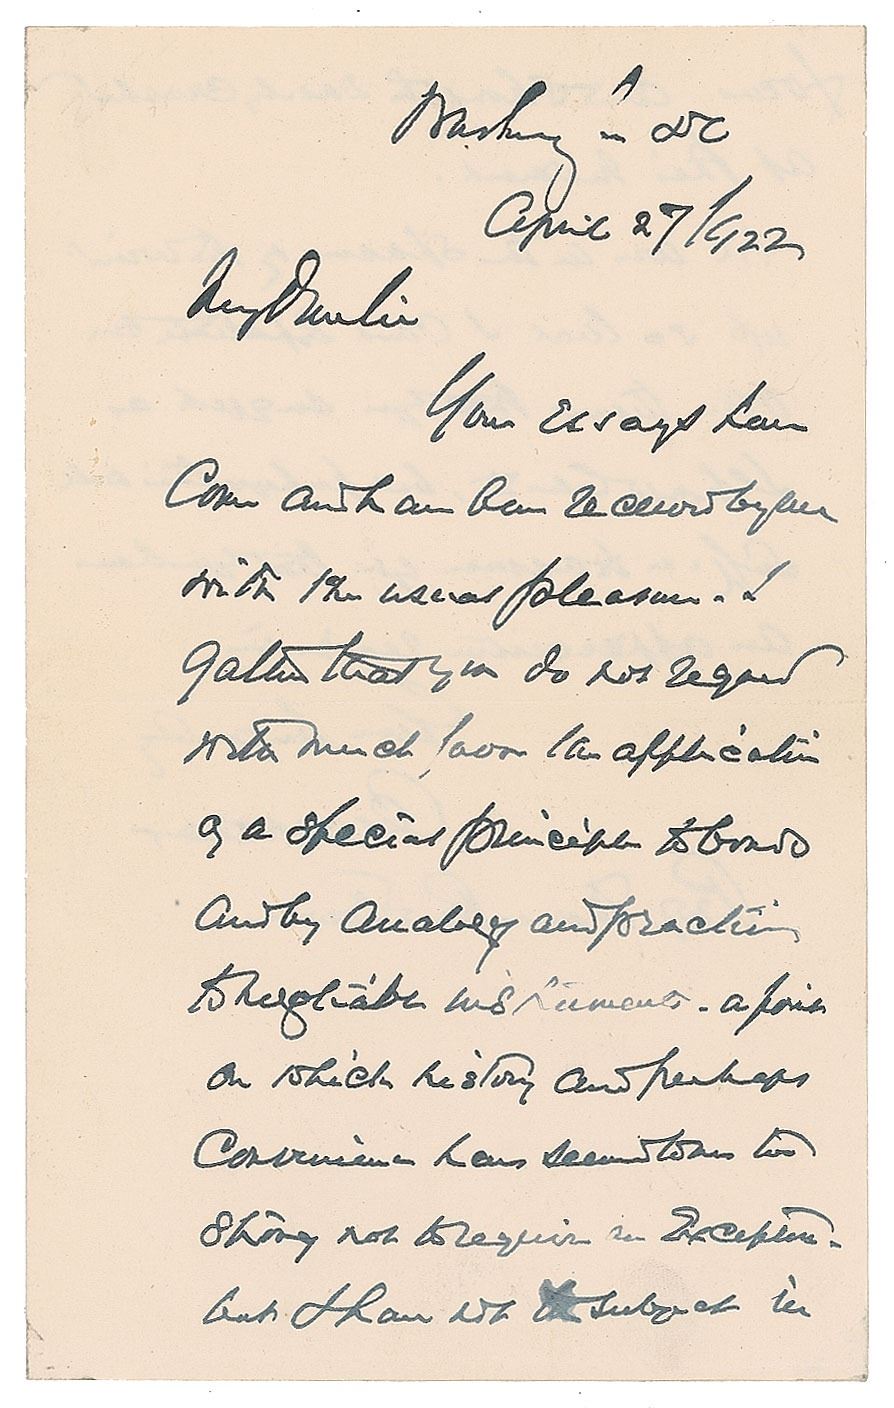 Washington DC
April 27/1922
My
Your Essays have
Come and have been received by me
with the usual pleasure. I
gather that you do not regard
with much favor the application
of a special principle to bonds
and by analogy and practice
to negotiable instruments - a point
on which history and perhaps
Convenience have seemed to me too
strong not to require an Exception -
but I have not subject in